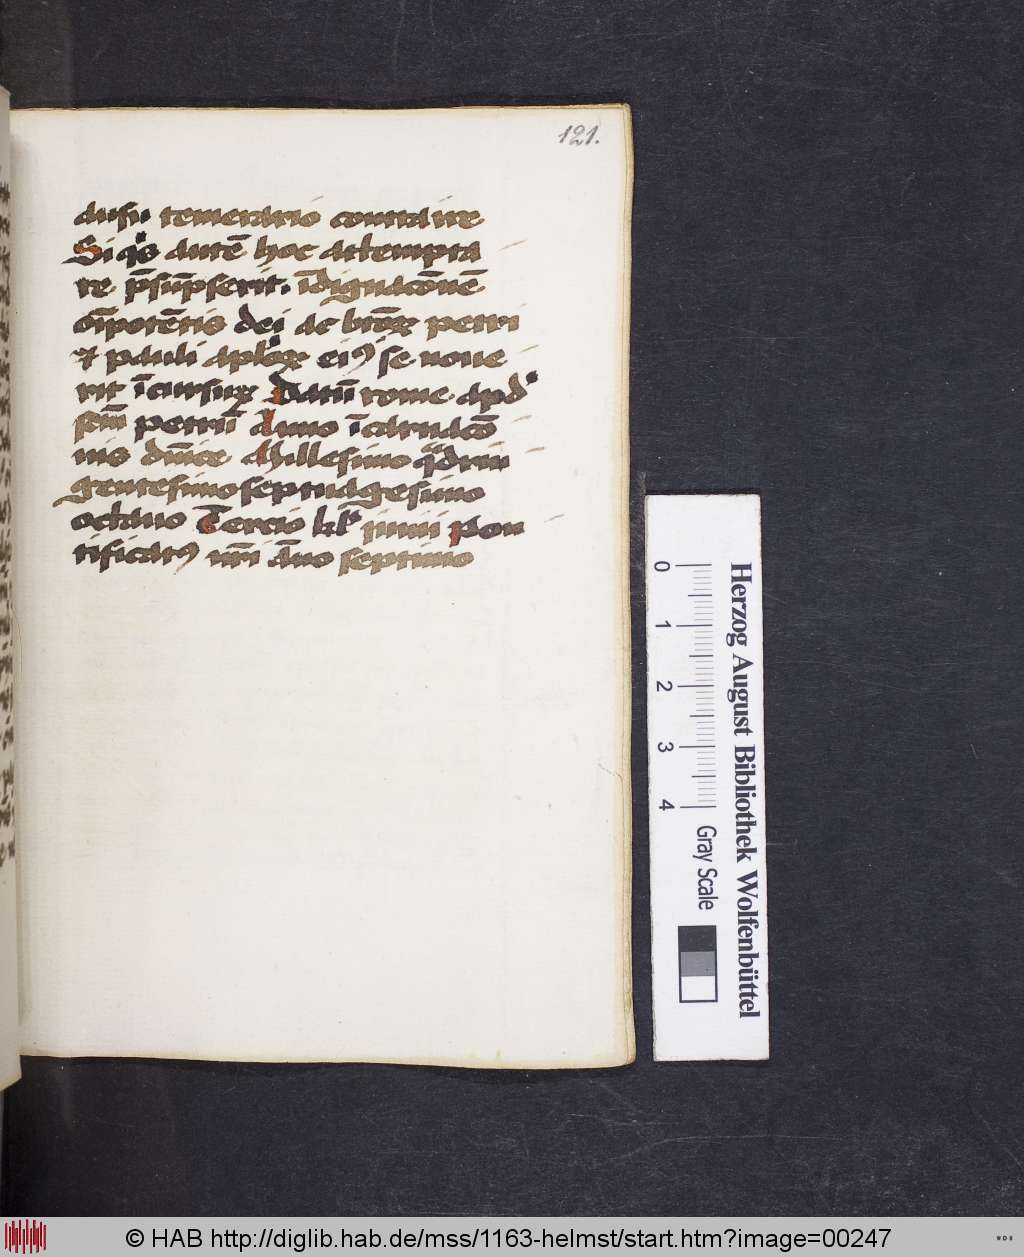 121.
ausu temerario contra ire
Si qͥs autē hoc attempta
re p̄sūpserit. īdignacōnē
oīpotētis dei ac btōꝝ petri
⁊ pauli aplōꝝ eiꝰ se noue
rit īcursuꝝ Datū rome apᵈ
scm̄ petrū Anno īcarnacō
nis dn̄ice Millesimo qᵃdrin
gentesimo septuagesimo
octauo Tercio kl' iunii pon
tificatꝰ nr̄i āno septimo
Herzog August Bibliothek Wolfenbüttel
0 1 2 3 4 Gray Scale
© HAB http://diglib.hab.de/mss/1163-helmst/start.htm?image=00247